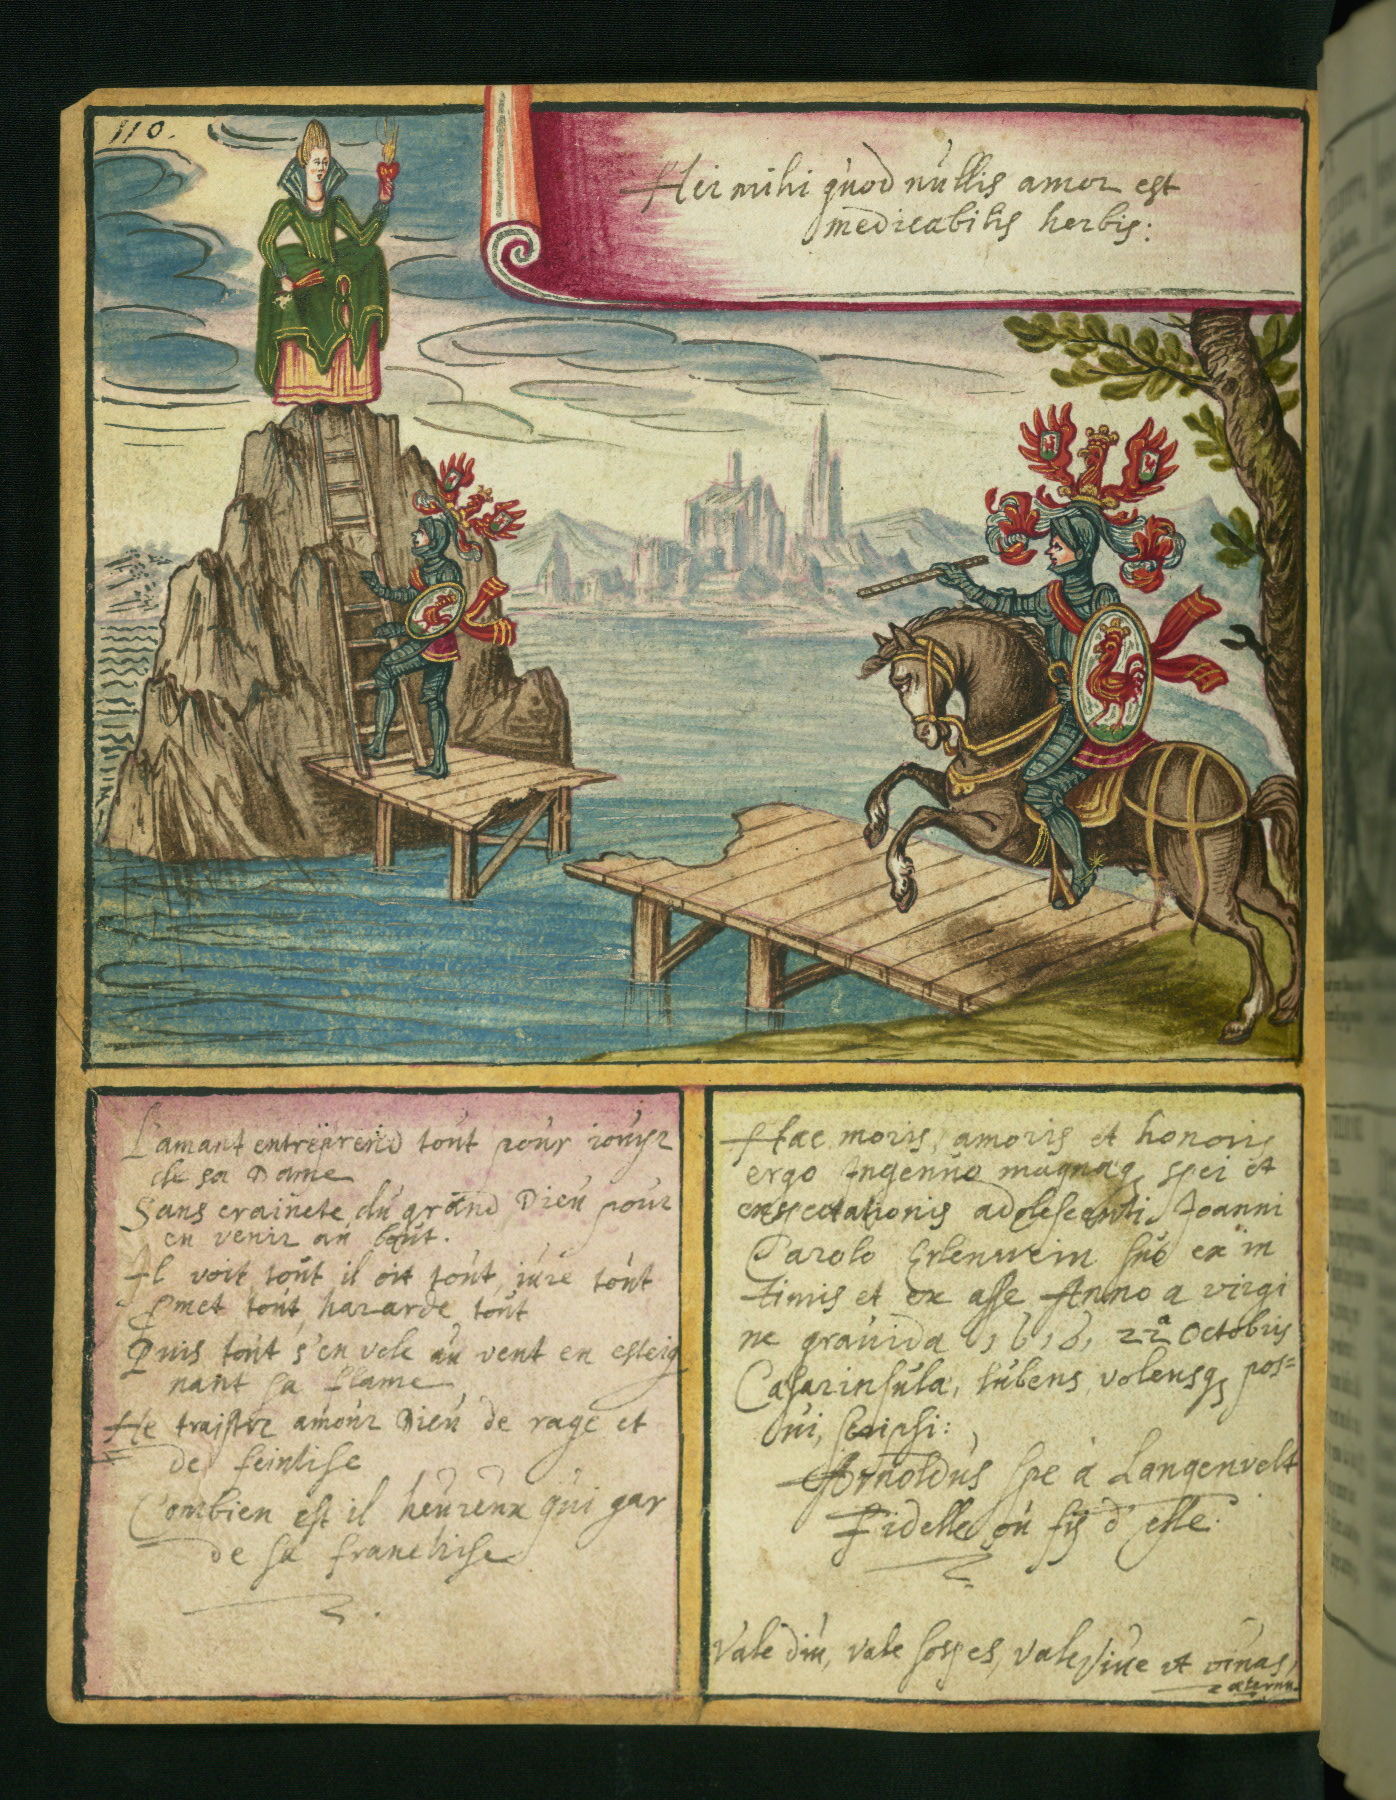 110.
Hei mihi quod nullis amor est
medicabilis herbis:
L'amant entreprend tout pour iouyr
de sa Dame
Sans crainete du grand Dieu pour
en venir au bout.
Il voit tout il oit tout, iure tout
Emet tout, hazarde tout
Puis tout s'en vole au vent en esteig
nant sa flame
He traistre amour Dieu de rage et
de feintise
Combien est il heureux qui gar
de sa franchise
Hac moris, amoris et honoris
ergo Ingenuo magnæq spei et
exspectationis adolescenti Joanni
Carolo Erlenwein suo ex in
timis et ex asse Anno a virgi
ne gravida 1616, 22ª Octobris
Cæsarinsula, lubens volensq pos=
ui, scripsi:
Arnoldus Spe à Langenvelt
Fidelle ou fij d'elle.
Vale diu, vale sospes, vale, vive et vivas,
æternu.